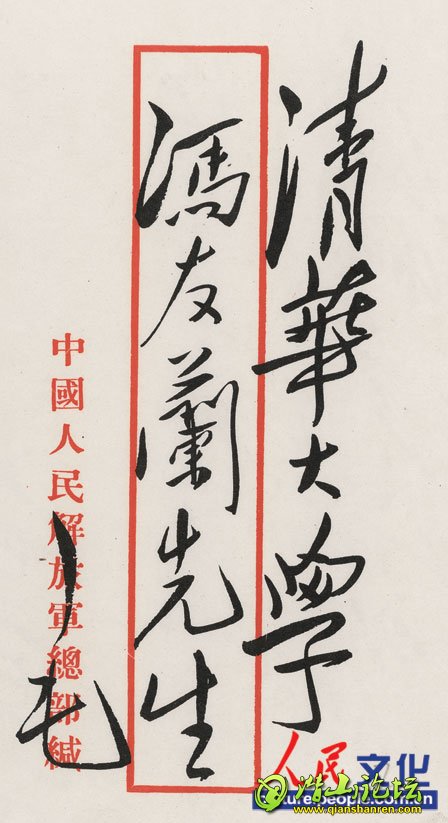 清華大學
馮友蘭先生
中國人民解放軍總部緘
毛
人民文化
culture.people.com.cn
www.qianshanren.com